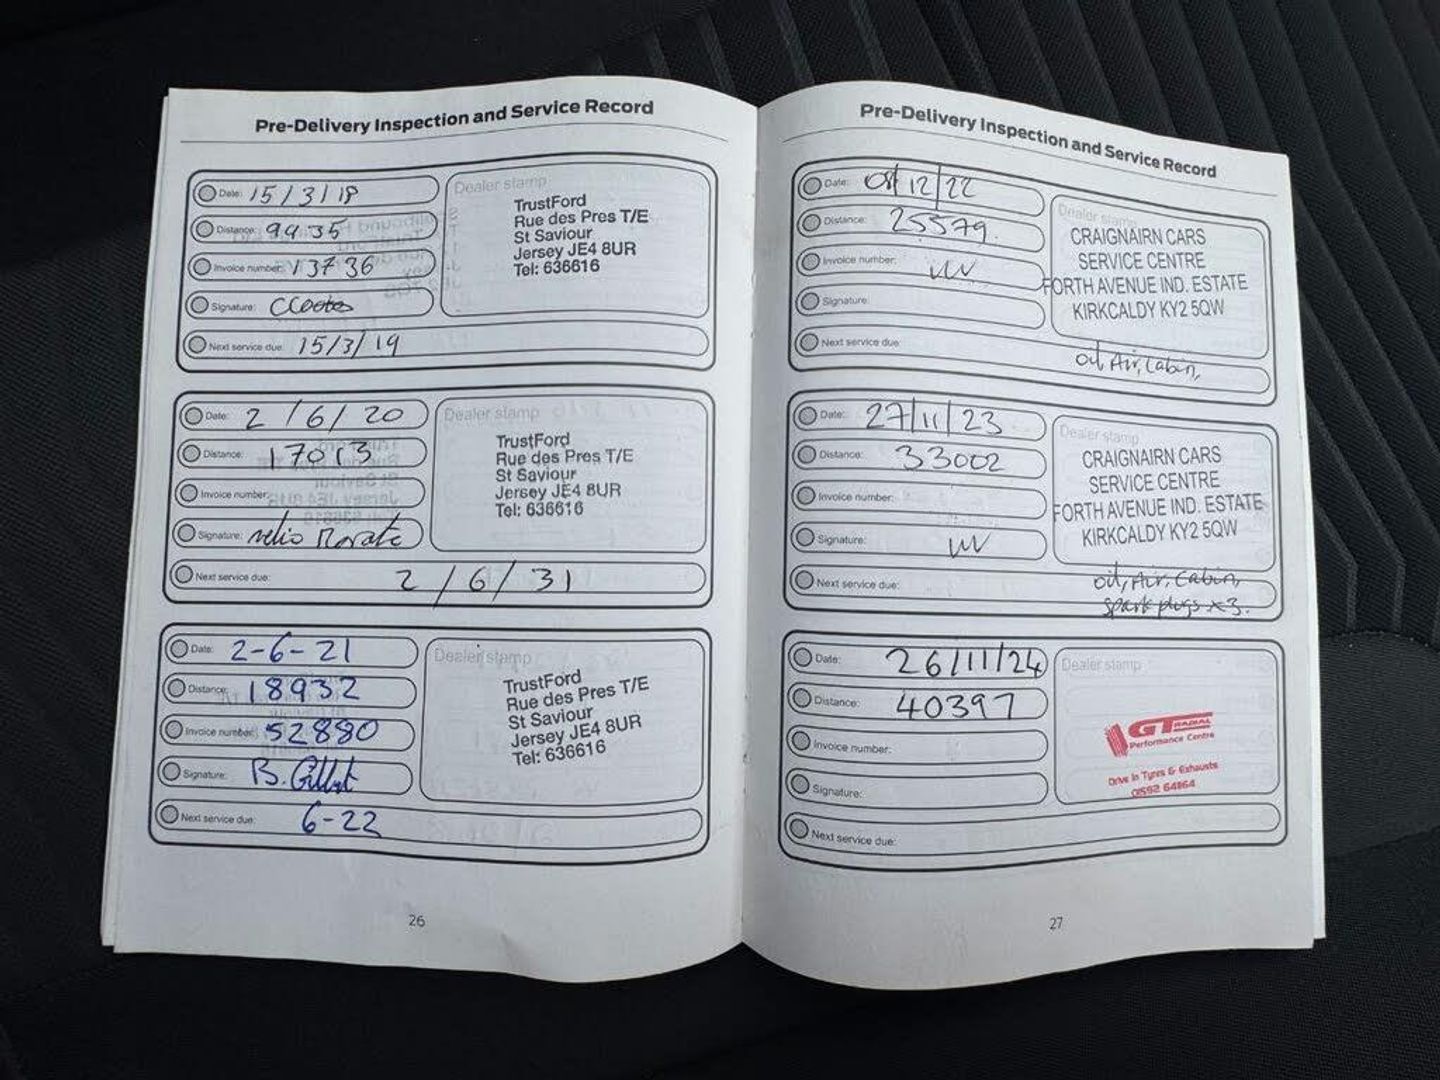 Pre-Delivery Inspection and Service Record
Date: 15/3/18
Dealer stamp
Distance: 9935
Invoice number: 13736
Signature:
Next service due: 15/3/19
TrustFord
Rue des Pres T/E
St Saviour
Jersey JE4 8UR
Tel: 636616
Date: 2/6/20
Dealer stamp
Distance: 17013
Invoice number:
Signature:
Next service due: 2/6/31
TrustFord
Rue des Pres T/E
St Saviour
Jersey JE4 8UR
Tel: 636616
Date: 2-6-21
Dealer stamp
Distance: 18932
Invoice number: 52880
Signature: B.
Next service due: 6-22
TrustFord
Rue des Pres T/E
St Saviour
Jersey JE4 8UR
Tel: 636616
26
Pre-Delivery Inspection and Service Record
Date: 08/12/22
Dealer stamp
Distance: 25579.
Invoice number:
Signature:
Next service due
oil, Air, Cabin,
CRAIGNAIRN CARS
SERVICE CENTRE
FORTH AVENUE IND. ESTATE
KIRKCALDY KY2 5QW
Date: 27/11/23
Dealer stamp
Distance: 33002
Invoice number:
Signature:
Next service due:
oil, Air, Cabin,
spark plugs x3.
CRAIGNAIRN CARS
SERVICE CENTRE
FORTH AVENUE IND. ESTATE
KIRKCALDY KY2 5QW
Date: 26/11/24
Dealer stamp
Distance: 40397
Invoice number:
Signature:
Next service due:
GT RADIAL
Performance Centre
Drive In Tyres & Exhausts
01592 64864
27